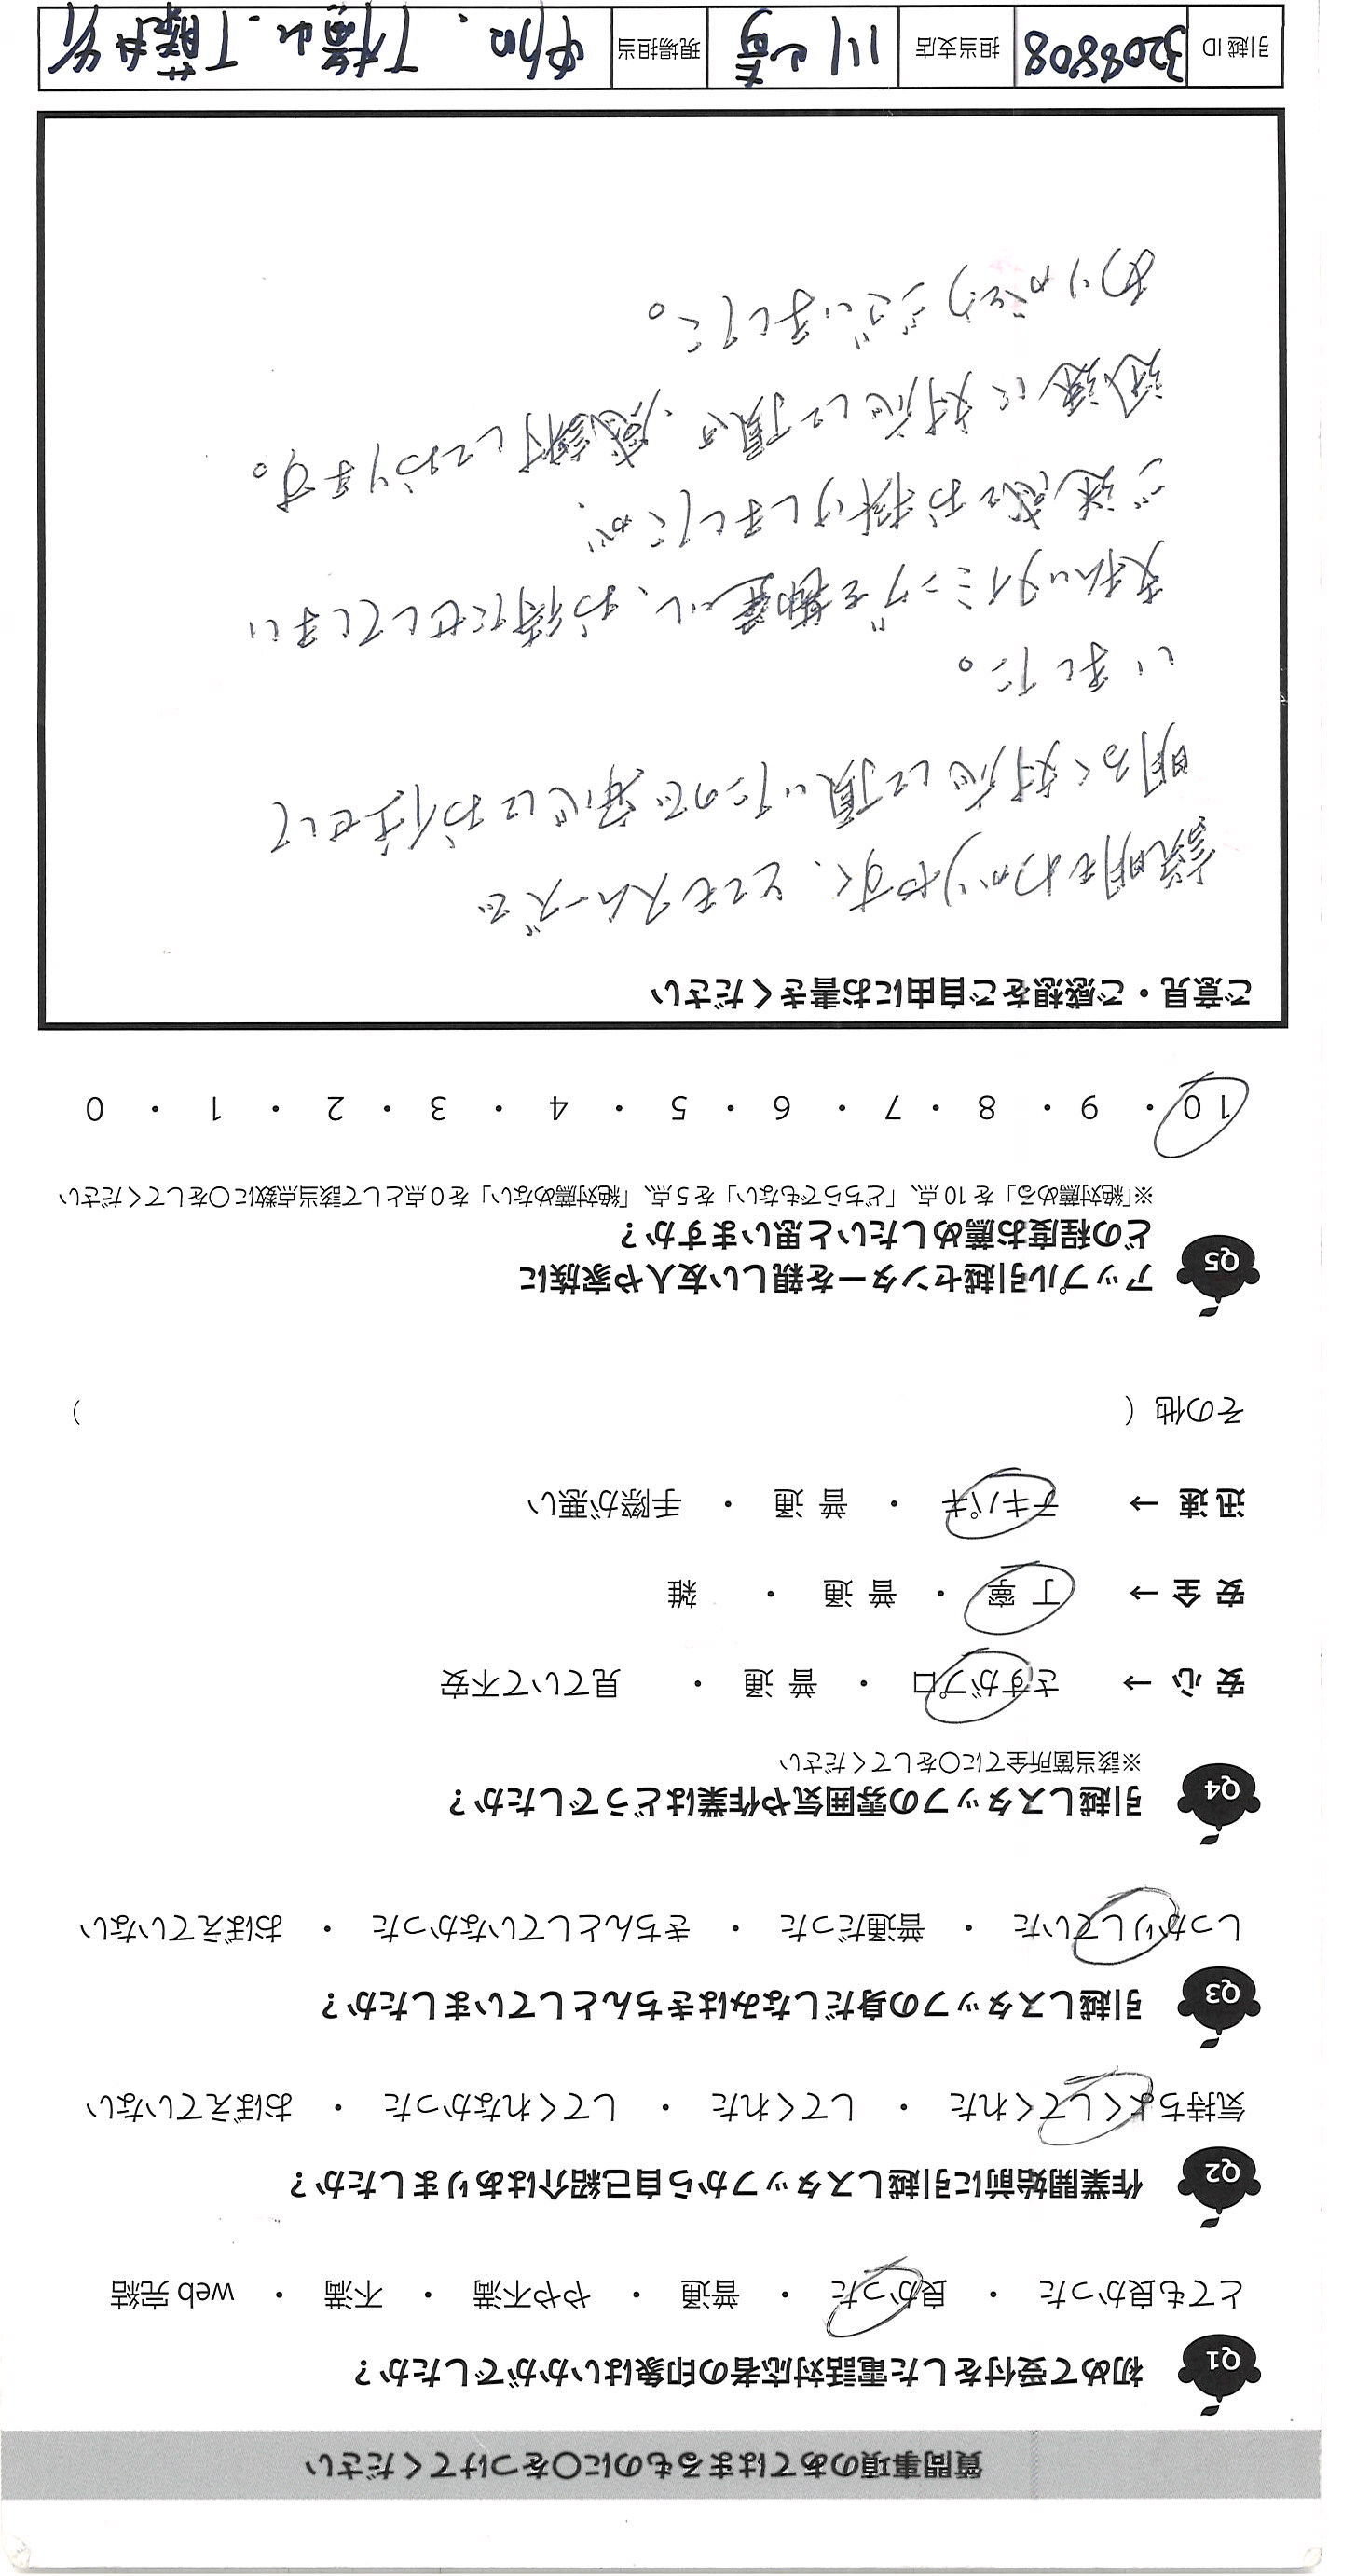 質問事項のあてはまるものに〇をつけてください
Q1 初めて受付をした電話対応者の印象はいかがでしたか？
とても良かった ・ 良かった ・ 普通 ・ やや不満 ・ 不満 ・ web 完結
Q2 作業開始前に引越しスタッフから自己紹介はありましたか？
気持ちよくしてくれた ・ してくれた ・ してくれなかった ・ おぼえていない
Q3 引越しスタッフの身だしなみはきちんとしていましたか？
しっかりしていた ・ 普通だった ・ きちんとしていなかった ・ おぼえていない
Q4 引越しスタッフの雰囲気や作業はどうでしたか？
※該当箇所全てに〇をしてください
安 心 → さすがプロ ・ 普 通 ・ 見ていて不安
安 全 → 丁 寧 ・ 普 通 ・ 雑
迅 速 → テキパキ ・ 普 通 ・ 手際が悪い
その他（ ）
Q5 アップル引越センターを親しい友人や家族に
どの程度お薦めしたいと思いますか？
※「絶対薦める」を 10 点、「どちらでもない」を 5 点、「絶対薦めない」を 0 点として該当点数に〇をしてください
10 ・ 9 ・ 8 ・ 7 ・ 6 ・ 5 ・ 4 ・ 3 ・ 2 ・ 1 ・ 0
ご意見・ご感想をご自由にお書きください
説明もわかりやすく、とてもスムーズで
明るく対応して頂いたので安心してお任せして
いました。
支払いタイミングを勘違いし、お待たせしてしまい
ご迷惑をお掛けしましたが、
迅速に対応して頂き、感謝しております。
ありがとうございました。
引越 ID 3208808 担当支店 川崎 現場担当